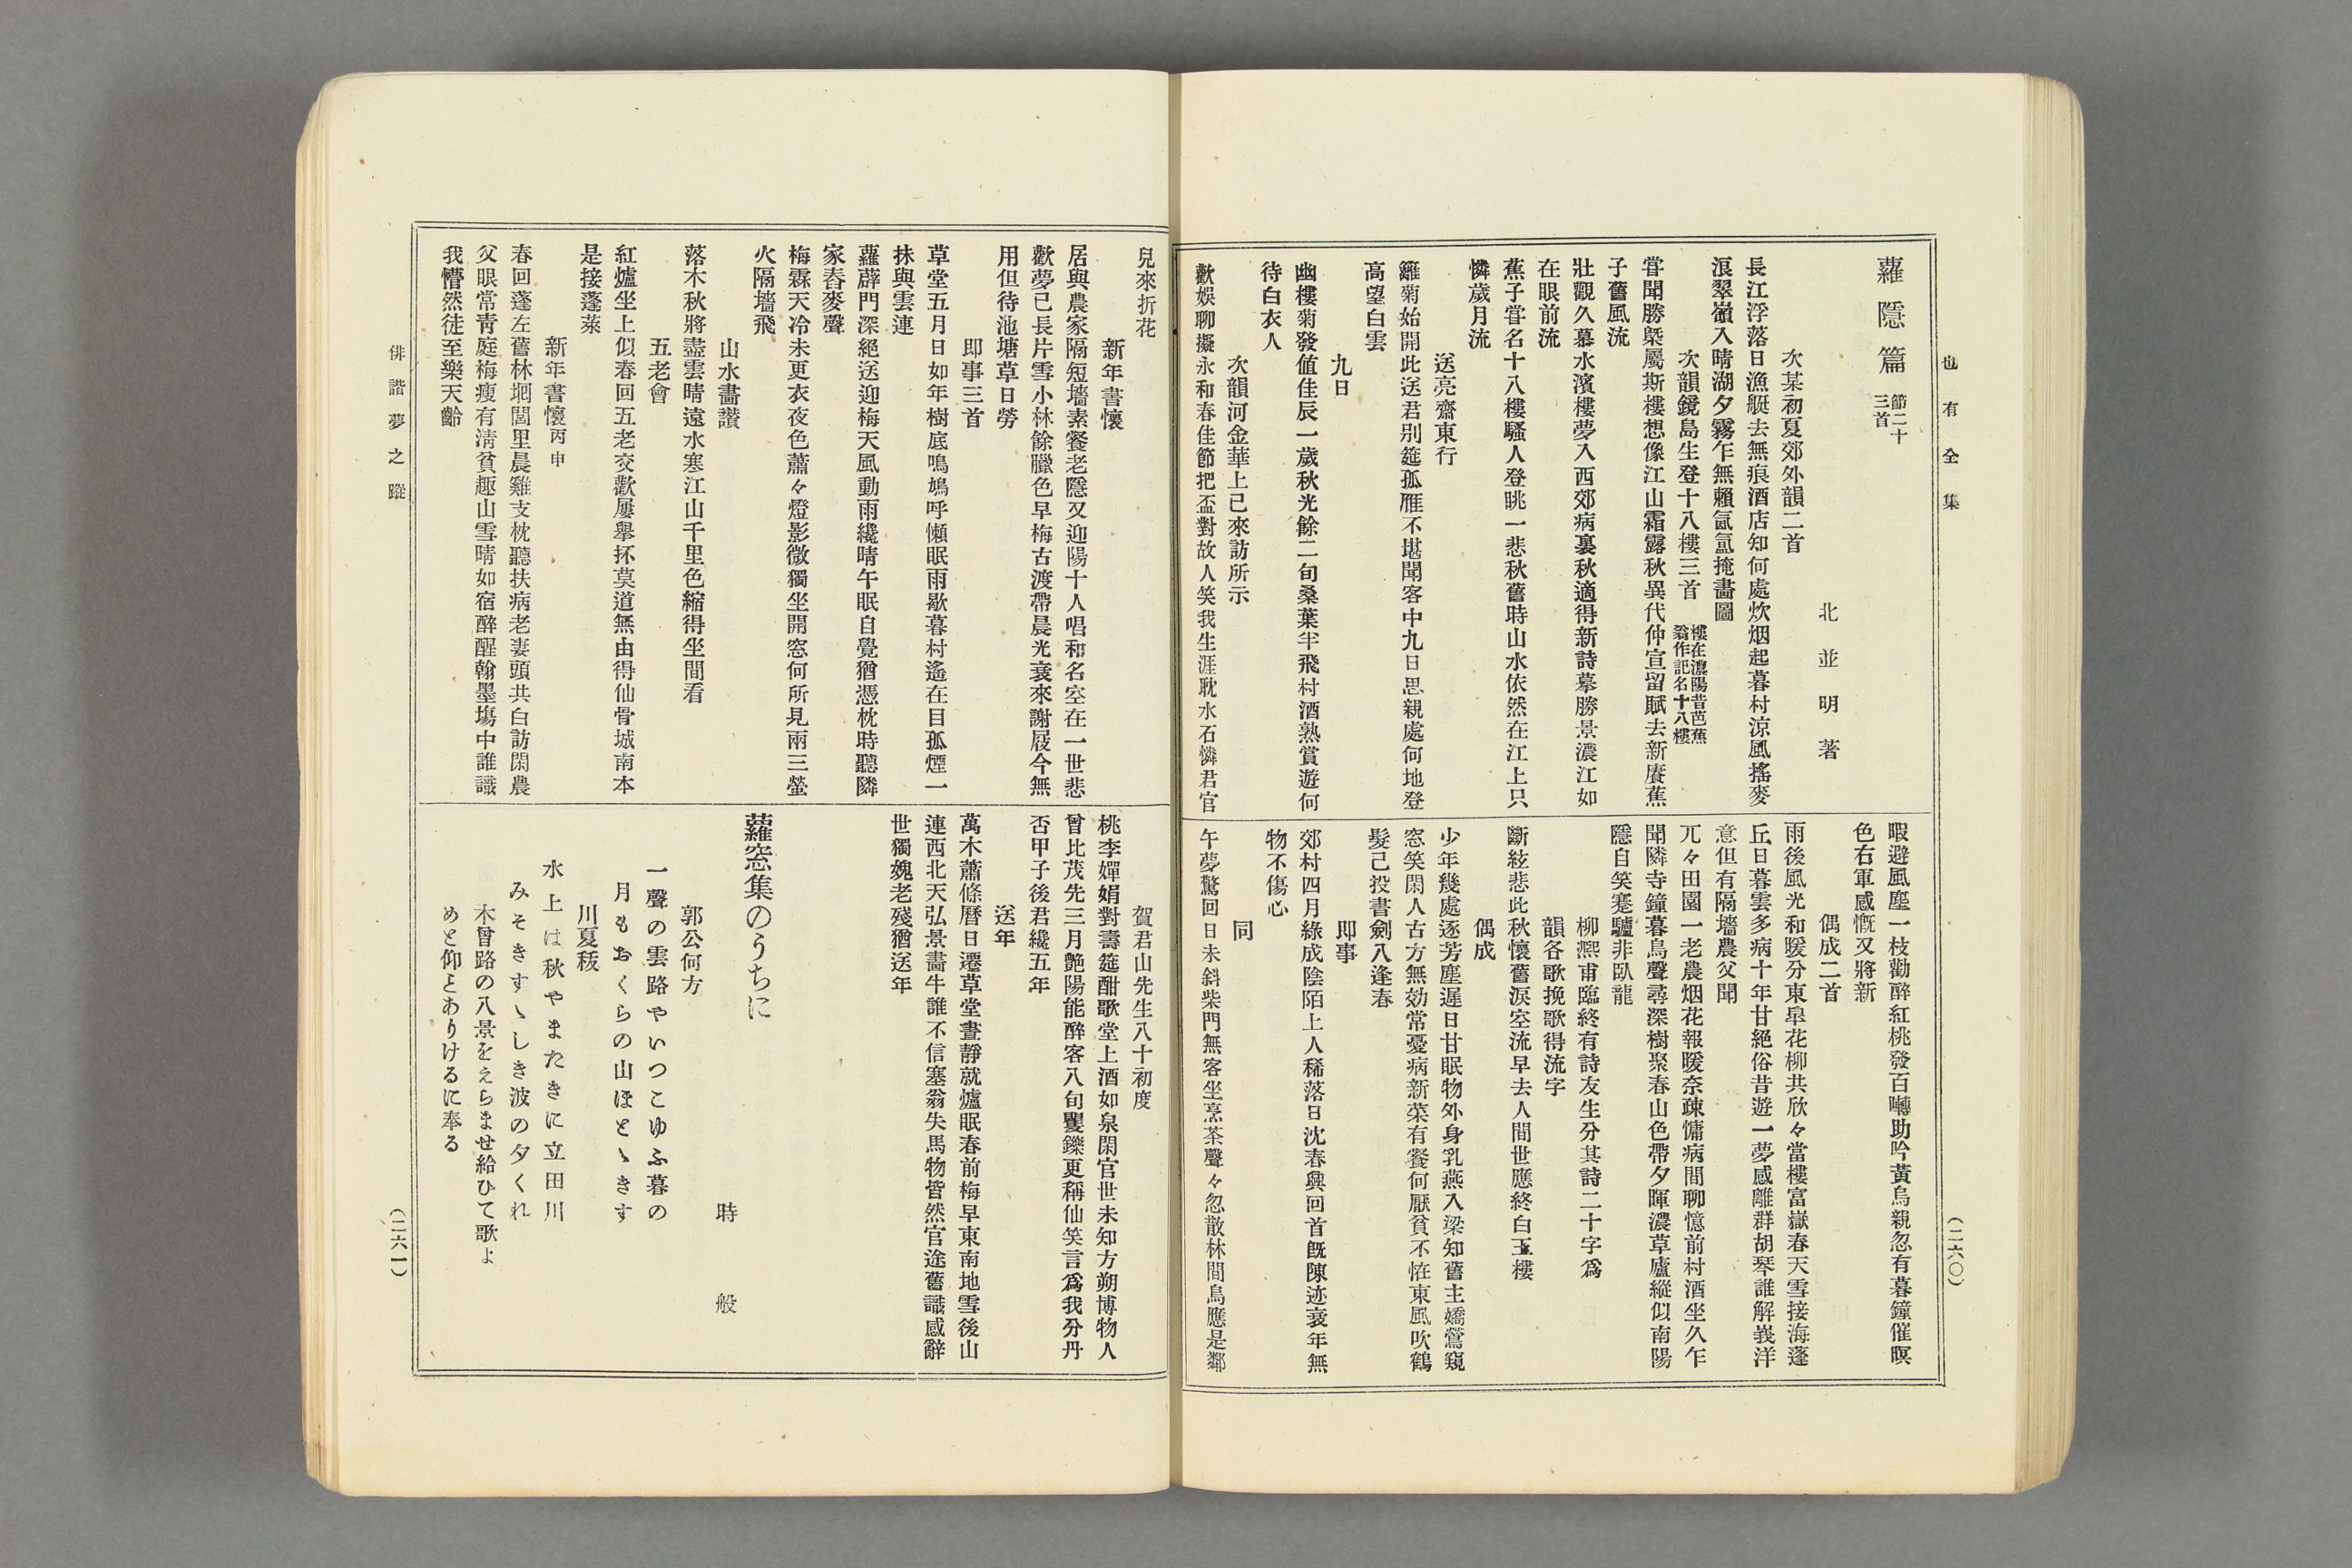 也有全集
(二六〇)
蘿隱篇 節二十三首
北並明著
次某初夏郊外韻二首
長江浮落日漁艇去無痕酒店知何處炊烟起暮村涼風搖麥
浪翠嶺入晴湖夕霧乍無賴氤氳掩畫圖
次韻鏡島生登十八樓三首 樓在濃陽昔芭蕉翁作記名十八樓
甞聞勝槩屬斯樓想像江山霜露秋異代仲宣留賦去新賡蕉
子舊風流
壯觀久慕水濱樓夢入西郊病裏秋適得新詩摹勝景濃江如
在眼前流
蕉子甞名十八樓騷人登眺一悲秋舊時山水依然在江上只
憐歲月流
送亮齋東行
籬菊始開此送君別筵孤雁不堪聞客中九日思親處何地登
高望白雲
九日
幽樓菊發値佳辰一歲秋光餘二旬桑葉半飛村酒熟賞遊何
待白衣人
次韻河金華上巳來訪所示
歡娛聊擬永和春佳節把盃對故人笑我生涯耽水石憐君官
暇避風塵一枝勸醉紅桃發百囀助吟黃鳥親忽有暮鐘催暝
色右軍感慨又將新
偶成二首
雨後風光和暖分東皐花柳共欣々當樓富嶽春天雪接海蓬
丘日暮雲多病十年甘絕俗昔遊一夢感離群胡琴誰解峩洋
意但有隔墻農父聞
兀々田園一老農烟花報暖奈疎慵病間聊憶前村酒坐久乍
聞隣寺鐘暮鳥聲尋深樹聚春山色帶夕暉濃草廬縱似南陽
隱自笑蹇驢非臥龍
柳凞甫臨終有詩友生分其詩二十字爲
韻各歌挽歌得流字
斷絃悲此秋懷舊淚空流早去人間世應終白玉樓
偶成
少年幾處逐芳塵遲日甘眠物外身乳燕入梁知舊主嬌鶯窺
窓笑閑人古方無効常憂病新菜有餐何厭貧不恠東風吹鶴
髮己投書劍八逢春
即事
郊村四月綠成陰陌上人稀落日沈春興回首旣陳迹衰年無
物不傷心
同
午夢驚回日未斜柴門無客坐烹茶聲々忽散林間鳥應是鄰
兒來折花
新年書懷
居與農家隔短墻素餐老隱又迎陽十人唱和名空在一世悲
歡夢已長片雪小林餘臘色早梅古渡帶晨光衰來謝屐今無
用但待池塘草日勞
即事三首
草堂五月日如年樹底鳴鳩呼懶眠雨歇暮村遙在目孤煙一
抹與雲連
蘿薜門深絕送迎梅天風動雨纔晴午眠自覺猶憑枕時聽隣
家舂麥聲
梅霖天冷未更衣夜色蕭々燈影微獨坐開窓何所見兩三螢
火隔墻飛
山水畵讚
落木秋將盡雲晴遠水寒江山千里色縮得坐間看
五老會
紅爐坐上似春回五老交歡屢擧抔莫道無由得仙骨城南本
是接蓬萊
新年書懷 丙申
春回蓬左舊林坰閭里晨雞支枕聽扶病老妻頭共白訪閑農
父眼常靑庭梅瘦有淸貧趣山雪晴如宿醉醒翰墨塲中誰識
我懵然徒至樂天齡
賀君山先生八十初度
桃李嬋娟對壽筵酣歌堂上酒如泉閑官世未知方朔博物人
曾比茂先三月艶陽能醉客八旬矍鑠更稱仙笑言爲我分丹
否甲子後君纔五年
送年
萬木蕭條曆日遷草堂晝靜就爐眠春前梅早東南地雪後山
連西北天弘景畵牛誰不信塞翁失馬物皆然官途舊識感辭
世獨媿老殘猶送年
蘿窓集のうちに
時般
郭公何方
一聲の雲路やいつこゆふ暮の
月もおくらの山ほとゝきす
川夏秡
水上は秋やまたきに立田川
みそきすゝしき波の夕くれ
木曾路の八景をえらませ給ひて歌よ
めと仰とありけるに奉る
俳諧夢之蹤
(二六一)